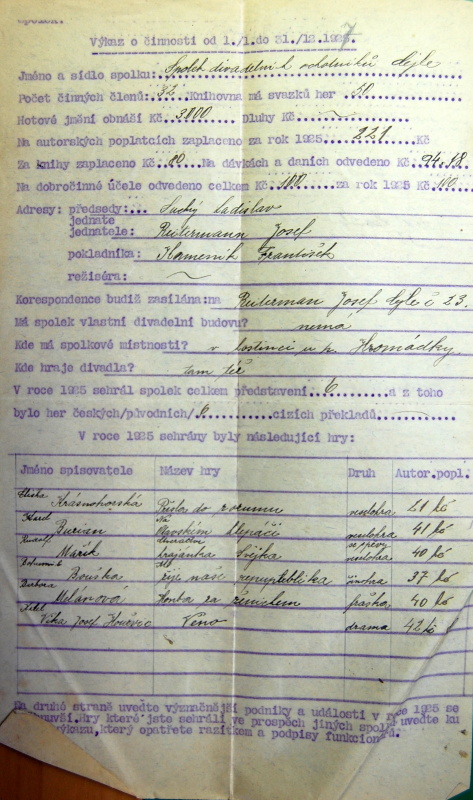 Výkaz o činnosti od 1./1.do 31./12.1925
Jméno a sídlo spolku: Spolek divadelních ochotníků
Počet činných členů: 32 Knihovna má svazků her 50
Hotové jmění obnáší Kč 3000 Dluhy Kč ~
Na autorských poplatcích zaplaceno za rok 1925 221 Kč
Za knihy zaplaceno Kč 80 Na dávkách a daních odvedeno Kč 94.18
Na dobročinné účele odvedeno celkem Kč 100 za rok 1925 Kč 100
Adresy: předsedy: Suchý Ladislav
jednate
jednatele: Reitermann Josef
pokladníka: Kameník František
režiséra: ~
Korespondence budiž zasílána:na Reiterman Josef č 23.
Má spolek vlastní divadelní budovu? nemá
Kde má spolkové místnosti? v hostinci u p. Hromádky
Kde hraje divadla? tam též
V roce 1925 sehrál spolek celkem představení 6 a z toho
bylo her českých/původních/ 6 cizích překladů
V roce 1925 sehrány byly následující hry:
Jméno spisovatele Název hry Druh Autor.popl.
Eliška Krásnohorská Přišla do rozumu veselohra 21 kč
Karel Burian Na veselohra 41 kč
Rudolf Mařík krajánka Švejka se zpěvy veselohra 40 kč
Bouška Ať žije naše republika činohra 37 kč
Milánová Honba za ženichem fraška 40 kč
Věka Josef drama 42 kč
Na druhé straně uveďte význačnější podniky a události v roce 1925 se
Hry které jste sehráli ve prospěch jiných uveďte ku
výkazu,který opatřete razítkem a podpisy